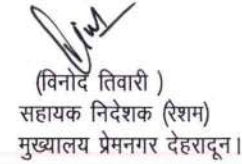 (विनोद तिवारी )
सहायक निदेशक (रेशम)
मुख्यालय प्रेमनगर देहरादून।